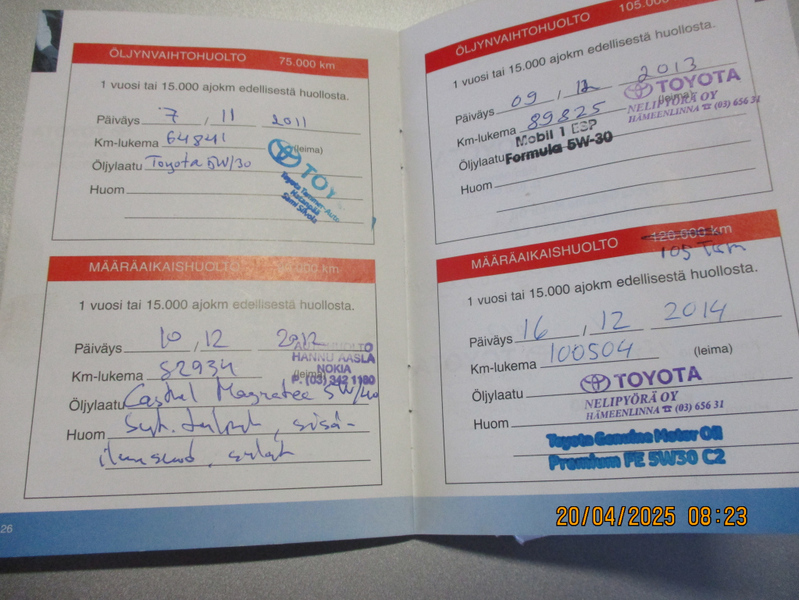 ÖLJYNVAIHTOHUOLTO 75.000 km
1 vuosi tai 15.000 ajokm edellisestä huollosta.
Päiväys 7, 11 2011
Km-lukema 64841
(leima)
Öljylaatu Toyota 5W/30
TOY
Huom
MÄÄRÄAIKAISHUOLTO 000 km
1 vuosi tai 15.000 ajokm edellisestä huollosta.
Päiväys 10, 12 2012
HANNU AASLA
NOKIA
Km-lukema 82934
P. (03) 342 1180
Öljylaatu Castrol Magnatec 5W/40
Huom
26
ÖLJYNVAIHTOHUOLTO 105.000 km
1 vuosi tai 15.000 ajokm edellisestä huollosta.
Päiväys 09, 12 2013
TOYOTA
(leima)
NELIPYÖRÄ OY
HÄMEENLINNA ☎ (03) 656 31
Km-lukema 89825
Mobil 1 ESP
Öljylaatu Formula 5W-30
Huom
MÄÄRÄAIKAISHUOLTO 120.000 km
105 T km
1 vuosi tai 15.000 ajokm edellisestä huollosta.
Päiväys 16, 12 2014
Km-lukema 100504 (leima)
Öljylaatu
TOYOTA
NELIPYÖRÄ OY
HÄMEENLINNA ☎ (03) 656 31
Huom
Toyota Genuine Motor Oil
Premium FE 5W30 C2
20/04/2025 08:23